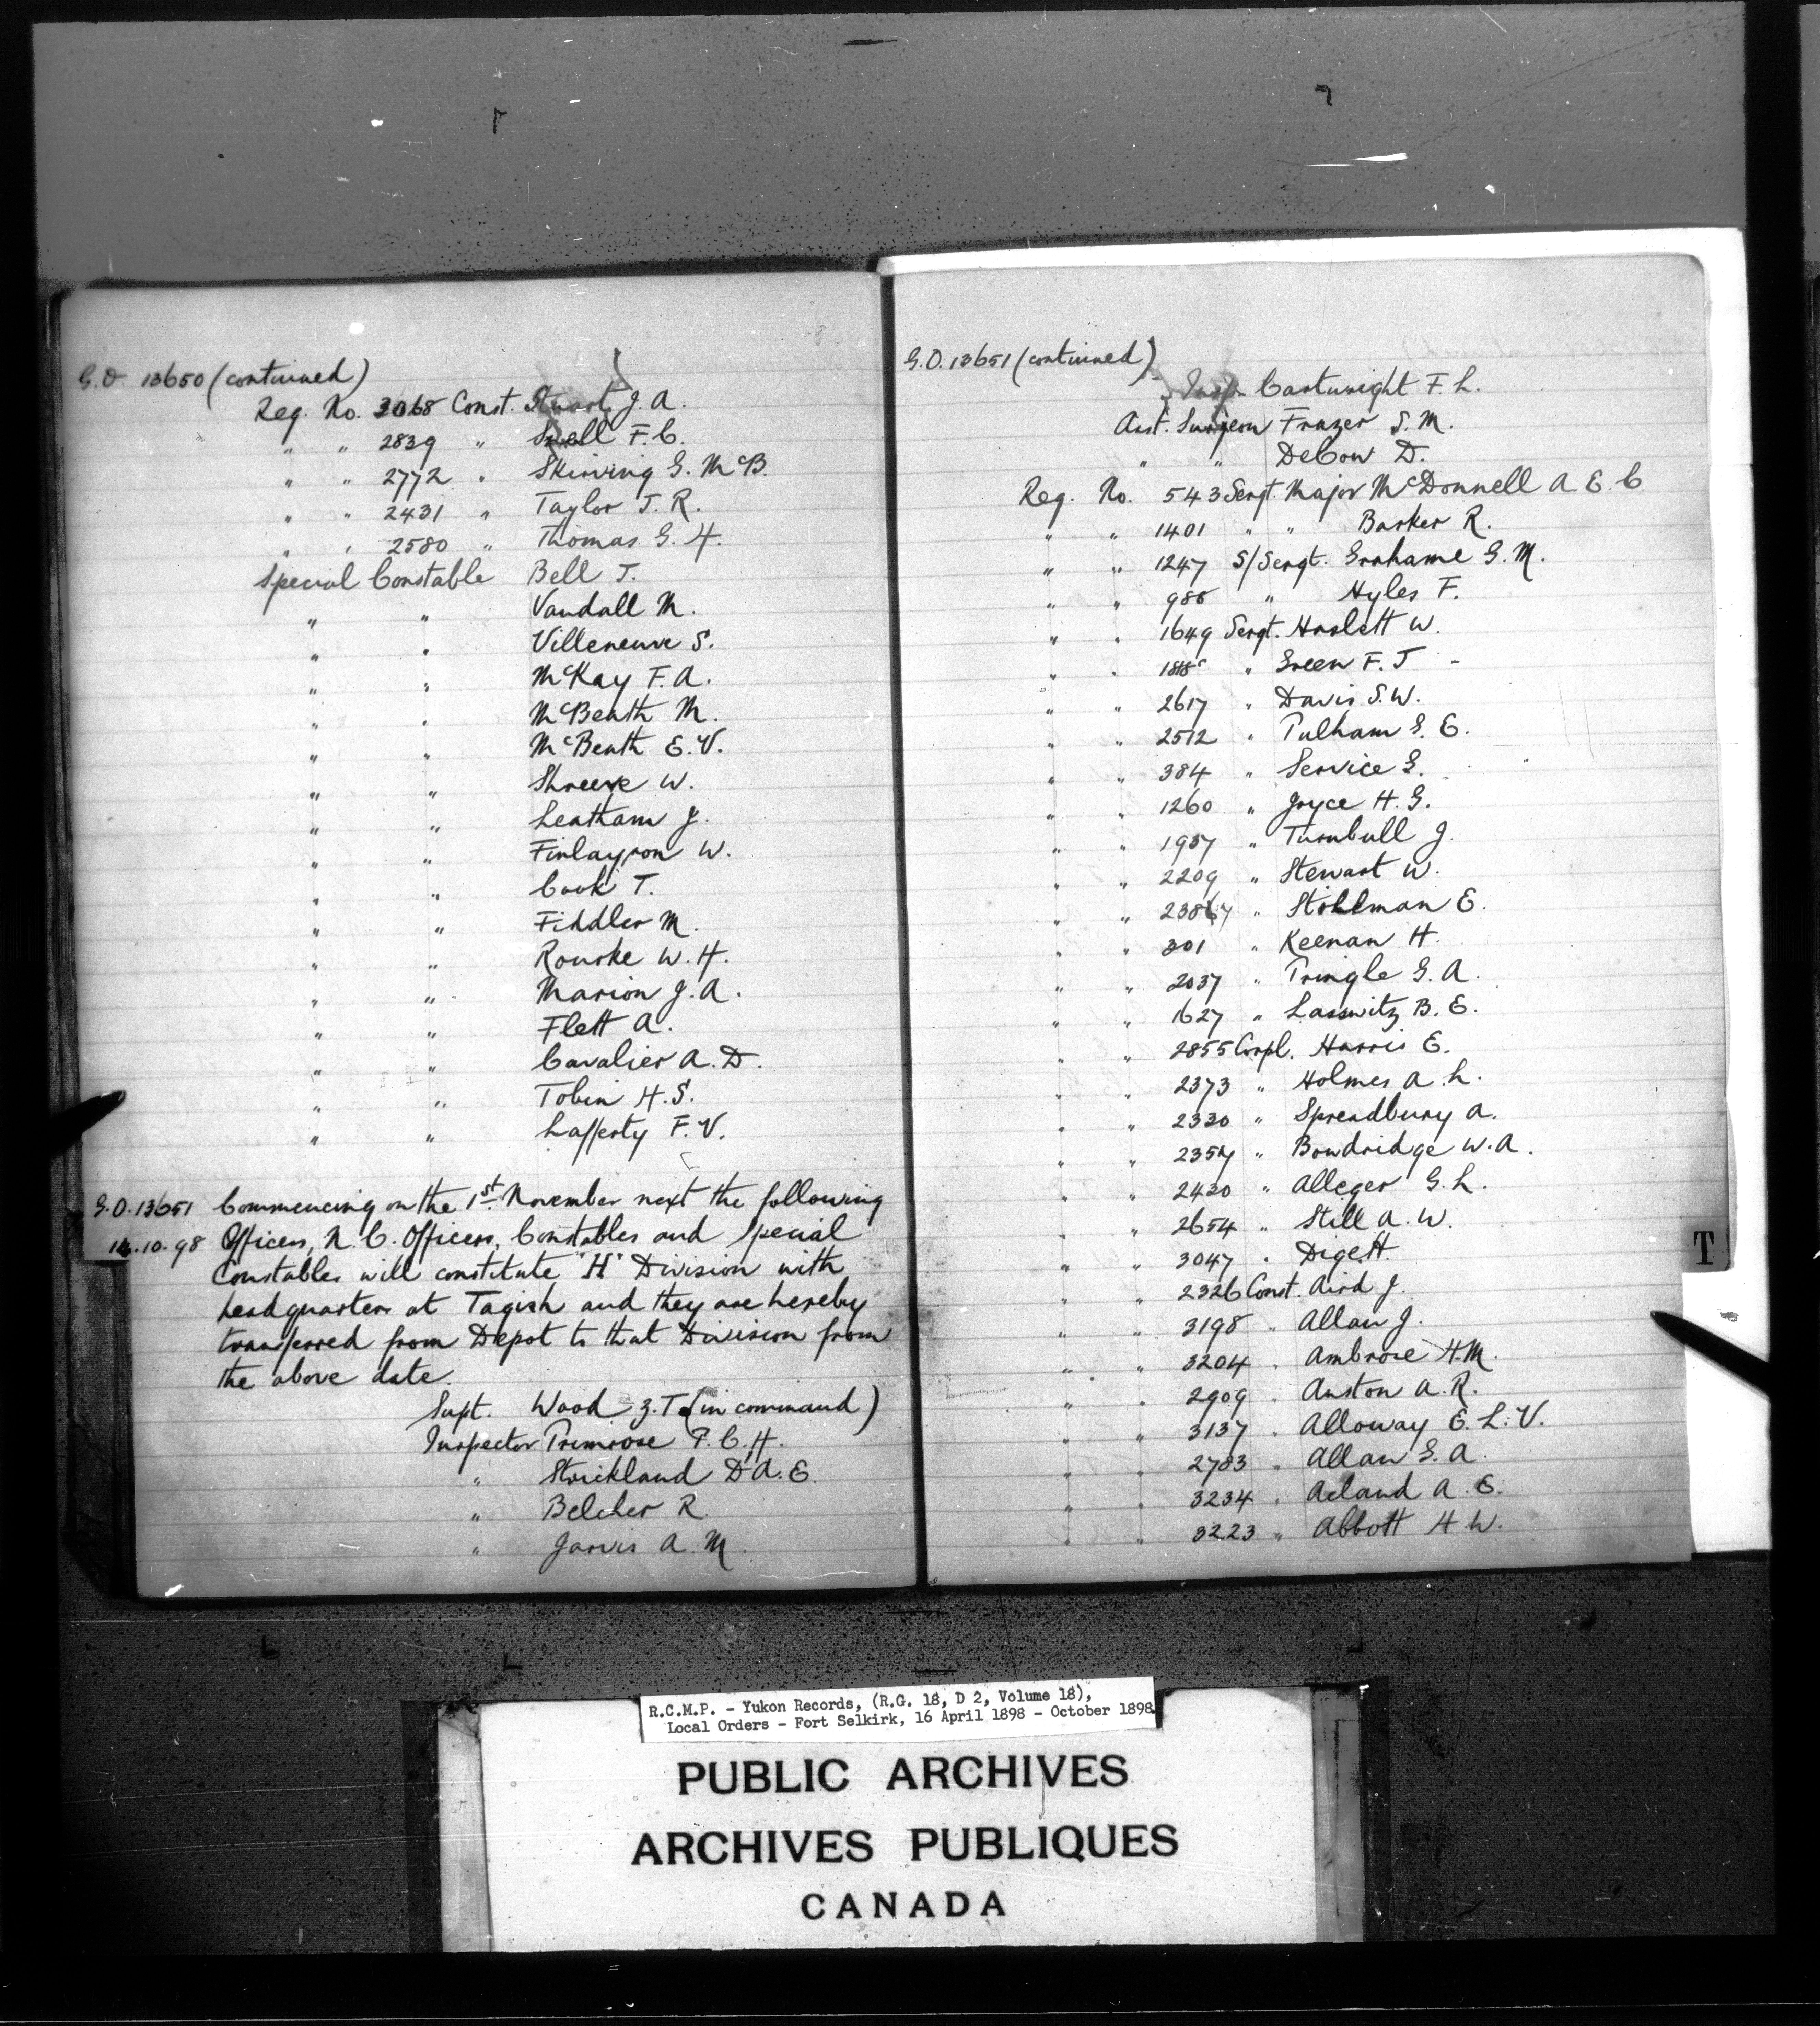 G.O. 13650 (continued)
Reg. No. 3068 Const. Stuart J. A.
" " 2839 " Snell F. C.
" " 2772 " Skirving G. McB.
" " 2431 " Taylor J. R.
" " 2580 " Thomas G. H.
Special Constable Bell J.
" " Vandall M.
" " Villeneuve S.
" " McKay F. A.
" " McBeath M.
" " McBeath E. V.
" " Shreeve W.
" " Leatham J.
" " Finlayson W.
" " Cook T.
" " Fiddler M.
" " Rourke W. H.
" " Marion J. A.
" " Flett A.
" " Cavalier A. D.
" " Tobin H. S.
" " Lafferty F. V.
G.O. 13651 Commencing on the 1st November next the following
14.10.98 Officers, N. C. Officers, Constables and Special
Constables will constitute "H" Division with
headquarters at Tagish and they are hereby
transferred from Depot to that Division from
the above date.
Supt. Wood Z. T. (in command)
Inspector Primrose P. C. H.
" Strickland D. A. E.
" Belcher R.
" Jarvis A. M.
G.O. 13651 (continued)
Insp. Cartwright F. L.
Asst. Surgeon Frazer S. M.
" " DeCow D.
Reg. No. 543 Sergt. Major McDonnell A. E. C
" " 1401 " " Barker R.
" " 1247 S/Sergt. Grahame G. M.
" " 988 " Hyles F.
" " 1649 Sergt. Haslett W.
" " " Green F. J
" " 2617 " Davis S. W.
" " 2512 " Pulham G. E.
" " 384 " Service G.
" " 1260 " Joyce H. G.
" " 1937 " Turnbull J.
" " 2209 " Stewart W.
" " " Stohlman E.
" " 301 " Keenan H.
" " 2037 " Pringle G. A.
" " 1627 " Lasswitz B. E.
" " 2855 Corpl. Harris E.
" " 2373 " Holmes A. L.
" " 2330 " Spreadbury A.
" " 2354 " Bowdridge W. A.
" " 2430 " Alleger G. L.
" " 2654 " Still A. W.
" " 3047 " Dige H.
" " 2326 Const. Aird J.
" " 3198 " Allan J.
" " 3204 " Ambrose H. M.
" " 2909 " Auston A. R.
" " 3137 " Alloway E. L. V.
" " 2783 " Allan G. A.
" " 3234 " Acland A. E.
" " 3223 " Abbott H. W.
T
R.C.M.P. - Yukon Records, (R.G. 18, D 2, Volume 18),
Local Orders - Fort Selkirk, 16 April 1898 - October 1898.
PUBLIC ARCHIVES
ARCHIVES PUBLIQUES
CANADA